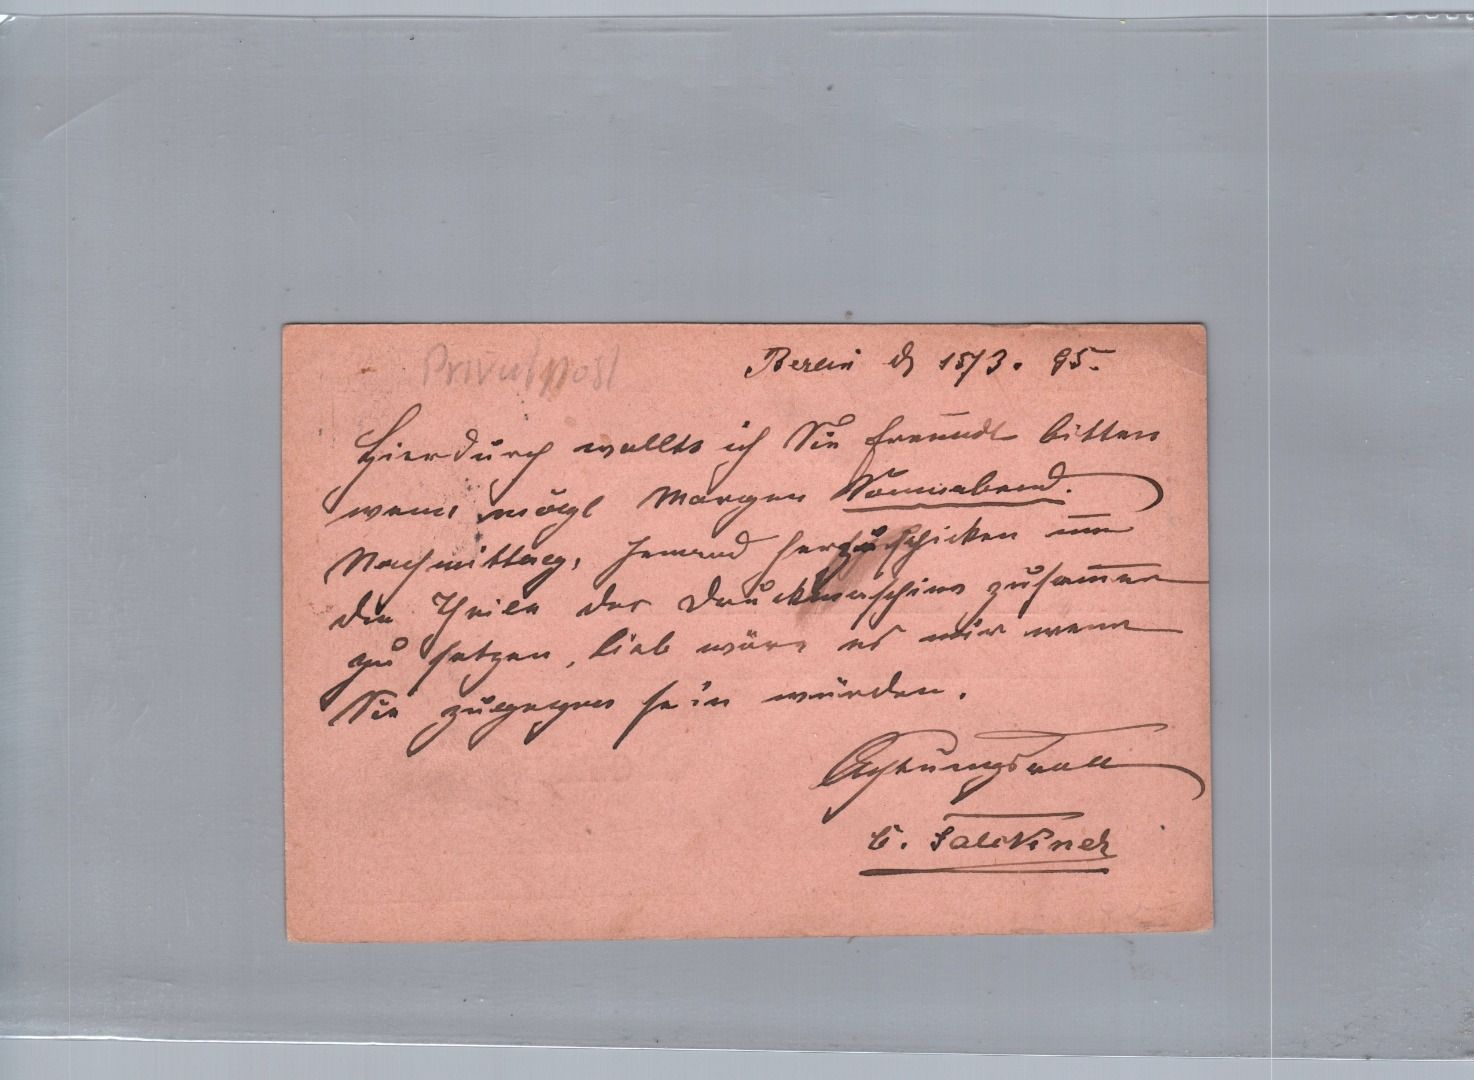 Privatpost
Berlin d 15/3. 95.
Hierdurch wollte ich Sie freundl bitten
wenn mögl Morgen Sonnabend
Nachmittag, Jemand herzuschicken um
die Theile der Druckmaschine zusammen
zu setzen, lieb wäre es mir wenn
Sie zugegen sein würden.
Achtungsvoll